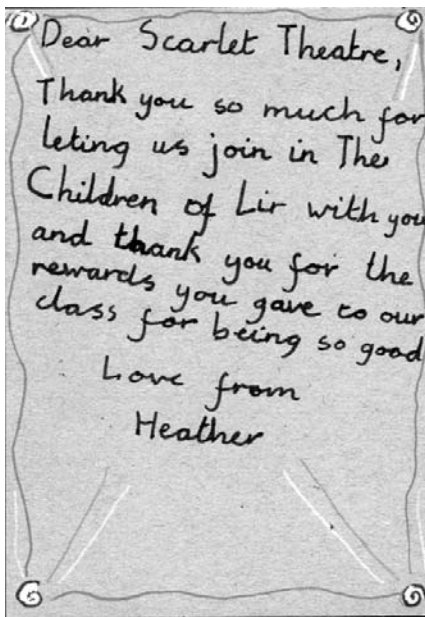 Dear Scarlet Theatre,
Thank you so much for
leting us join in The
Children of Lir with you
and thank you for the
rewards you gave to our
class for being so good
Love from
Heather